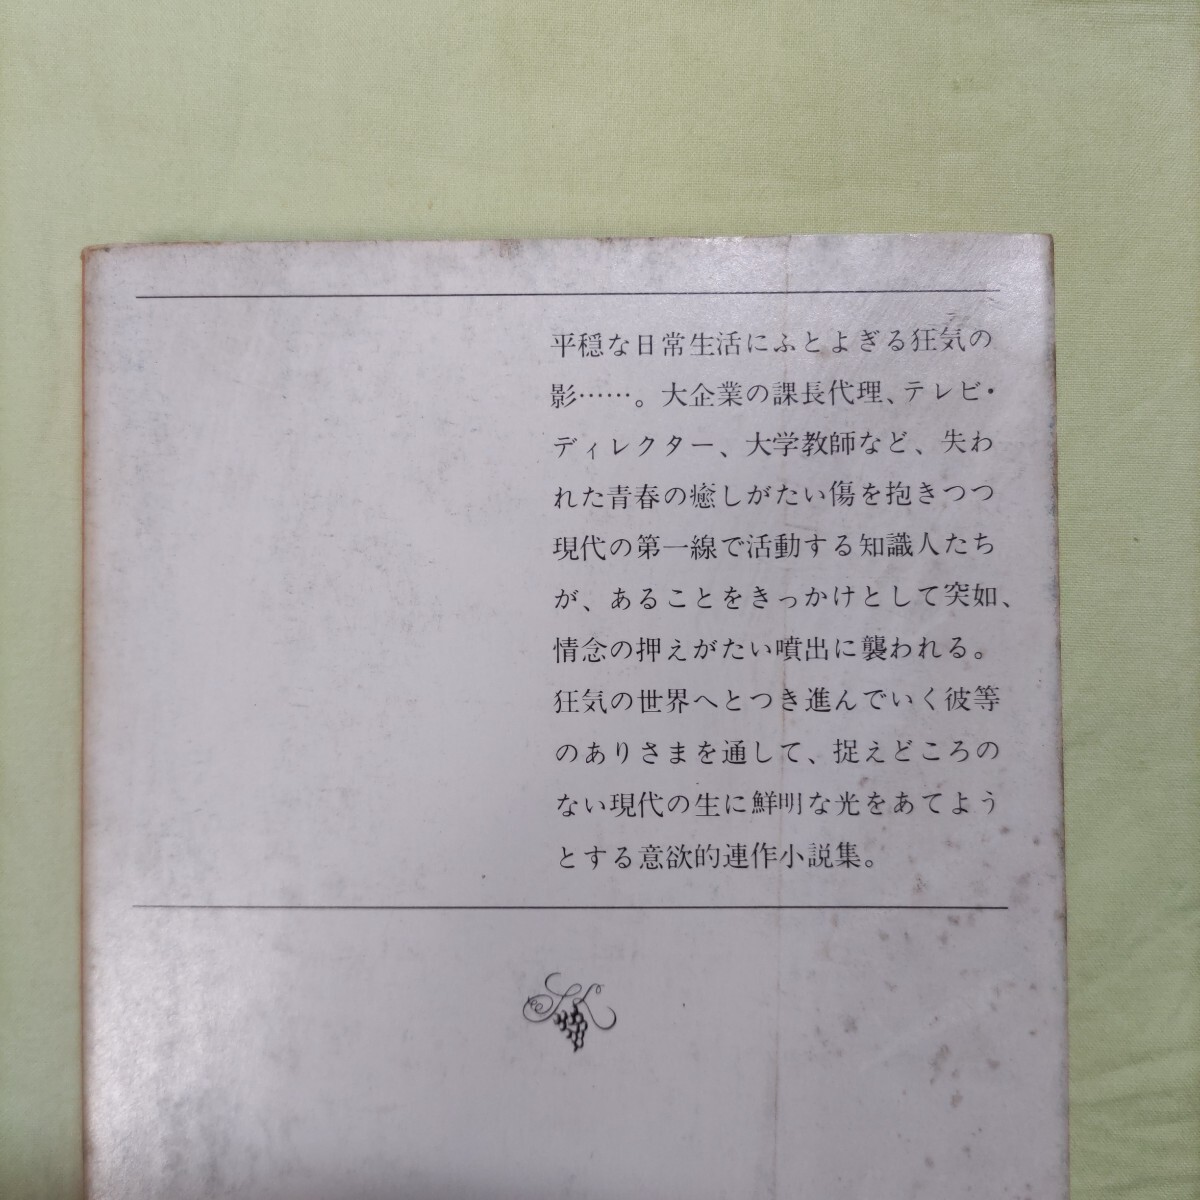 平穏な日常生活にふとよぎる狂気の
影……。大企業の課長代理、テレビ・
ディレクター、大学教師など、失わ
れた青春の癒しがたい傷を抱きつつ
現代の第一線で活動する知識人たち
が、あることをきっかけとして突如、
情念の押えがたい噴出に襲われる。
狂気の世界へとつき進んでいく彼等
のありさまを通して、捉えどころの
ない現代の生に鮮明な光をあてよう
とする意欲的連作小説集。